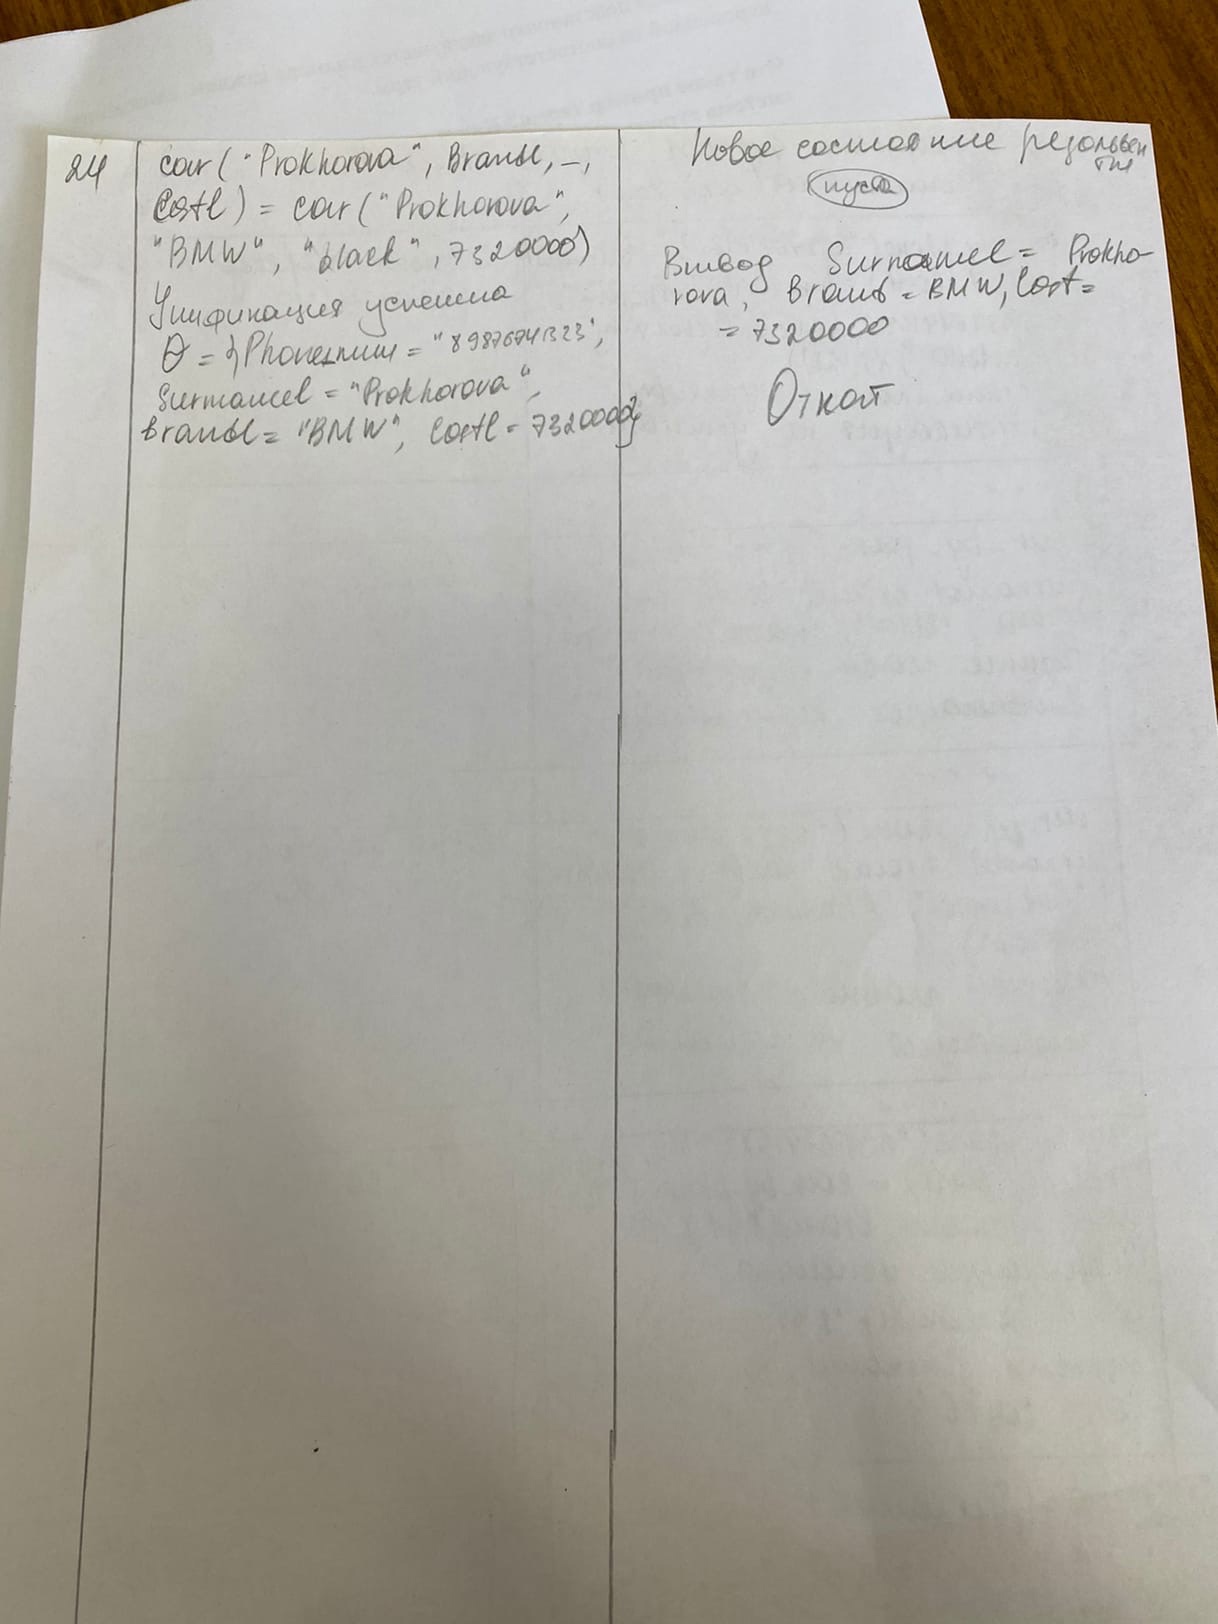 24
car("Prokhorova", Brandl, _,
Costl) = car("Prokhorova",
"BMW", "black", 7320000)
Унификация успешна
Θ = {Phonenum = "89876741323",
Surnamel = "Prokhorova",
Brandl = "BMW", Costl = 7320000}
Новое состояние резольвен
ты
пуста
Вывод Surnamel = Prokho-
rova, Brand = BMW, Cost =
= 7320000
Откат